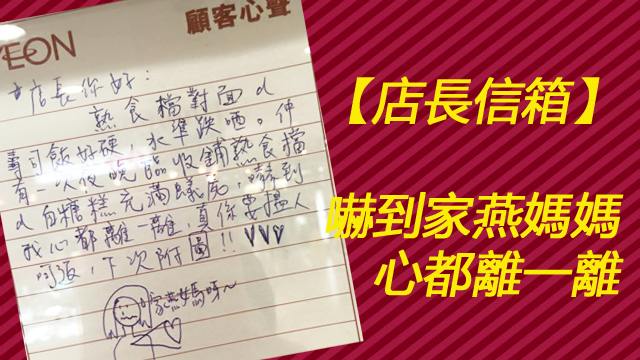 EON
顧客心聲
店長你好：
熱食檔對面d
壽司飯好硬，水準跌哂。仲
有一次夜晚臨收鋪熱食檔
d白糖糕充滿蟻屍，嚇到
我心都離一離，真係要搵人
，下次附圖!!
家燕媽媽呀~
【店長信箱】
嚇到家燕媽媽
心都離一離